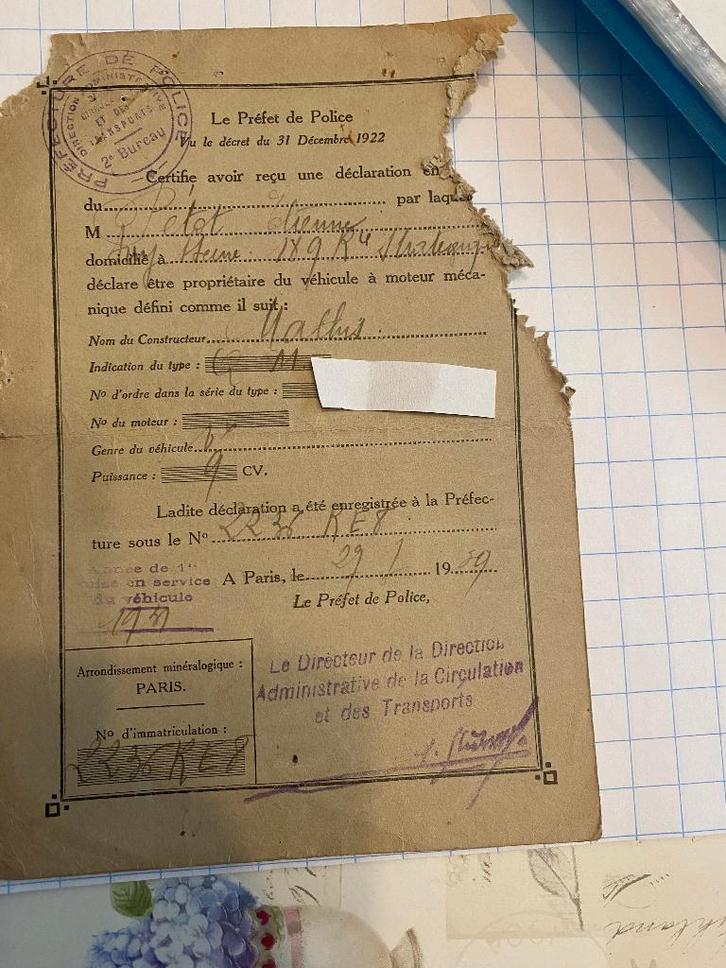 PRÉFECTURE DE POLICE
DIRECTION ADMINISTRATIVE
ET DES
TRANSPORTS
2e Bureau
Le Préfet de Police
Vu le décret du 31 Décembre 1922
Certifie avoir reçu une déclaration en
du par laqu
M Petot Etienne
domicilié à Seine 189 Rte Stratégique
déclare être propriétaire du véhicule à moteur méca-
nique défini comme il suit :
Nom du Constructeur Mathis
Indication du type :
No d'ordre dans la série du type :
No du moteur :
Genre du véhicule
Puissance : 9 CV.
Ladite déclaration a été enregistrée à la Préfec-
ture sous le No 2236 RE8
Année de 1re
mise en service
du véhicule
1931
A Paris, le 29 1 1939
Le Préfet de Police,
Le Directeur de la Direction
Administrative de la Circulation
et des Transports
Arrondissement minéralogique :
PARIS.
No d'immatriculation :
2236 RE8